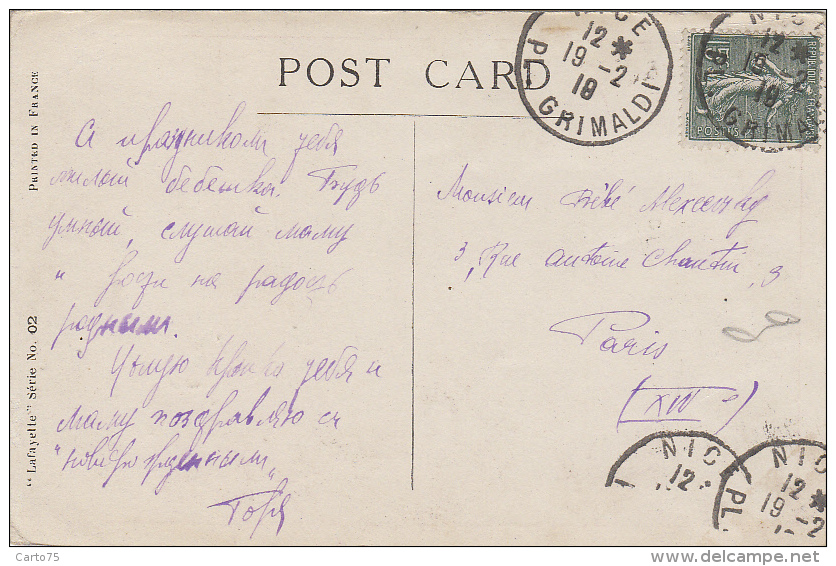 POST CARD
PRINTED IN FRANCE
"Lafayette" Série No. 02
С праздником тебя
милый бебешка. Будь
умной, слушай маму
и рости на радость
родным.
Целую крепко тебя и
маму поздравляю с
"новорожденным"
Monsieur Bébé
3, Rue Antoine Chantin, 3
Paris
(XIV e)
NICE
12 *
19 - 2
18
PL. GRIMALDI
NICE
12 *
19 - 2
18
GRIMAL
POSTES
NICE
12 *
NIC
12 *
19 - 2
PL
Carto75
www.delcampe.net